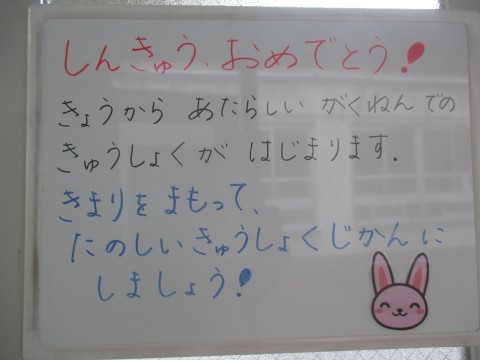 しんきゅう、おめでとう！
きょうから あたらしい がくねんでの
きゅうしょくが はじまります。
きまりをまもって、
たのしいきゅうしょくじかんに
しましょう！